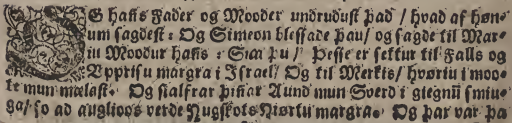 OG hans Fader og Mooder undrudust þad / hvad af høn-
um sagdest: Og Simeon blessade þau / og sagde til Mar-
iu Moodur hans: Siaa þu / Þesse er settur til Falls og
Upprisu margra i Israel / Og til Merkis / hvøriu i moo-
te mun mælast. Og sialfrar þinar Aund mun Sverd i giegnū smiu-
ga / so ad auglioos verde Hugskots Hiørtu margra. Og þar var þa